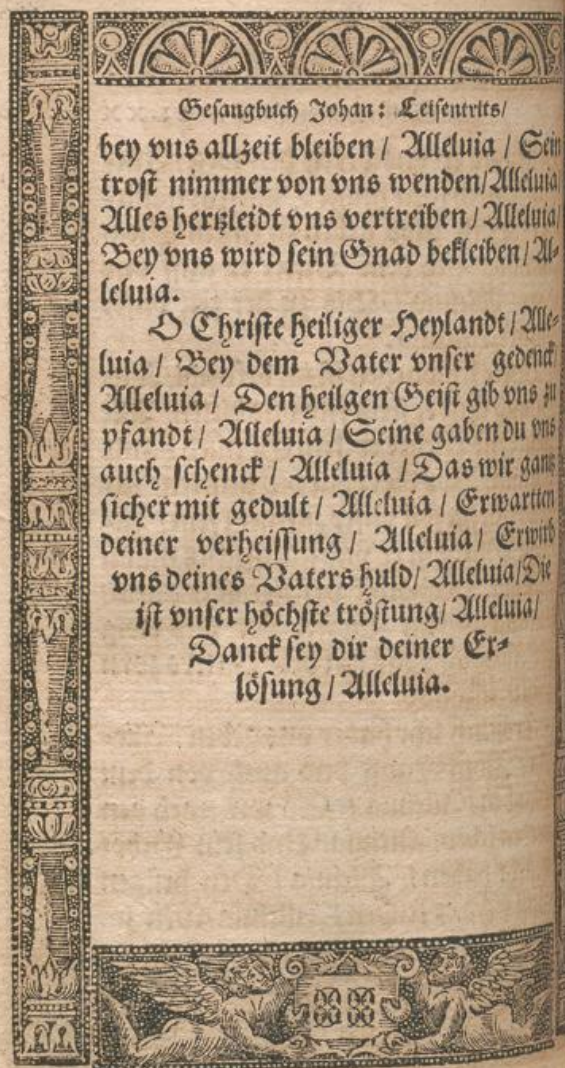 Gesangbuch Johan: Leisentrits/
bey vns allzeit bleiben / Alleluia / Sein
trost nimmer von vns wenden/Alleluia
Alles hertzleidt vns vertreiben / Alleluia/
Bey vns wird sein Gnad bekleiben / Al-
leluia.
O Christe heiliger Heylandt / Alle-
luia / Bey dem Vater vnser gedenck
Alleluia / Den heilgen Geist gib vns zu
pfandt / Alleluia / Seine gaben du vns
auch schenck / Alleluia / Das wir gantz
sicher mit gedult / Alleluia / Erwartten
deiner verheissung / Alleluia / Erwirb
vns deines Vaters huld/ Alleluia/Die
ist vnser höchste tröstung/ Alleluia/
Danck sey dir deiner Er-
lösung / Alleluia.